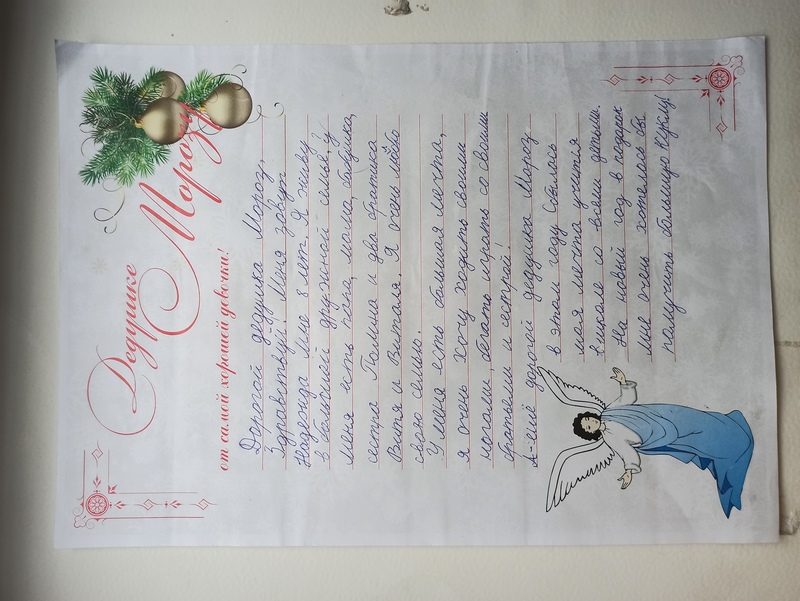 Дедушке
Морозу
от самой хорошей девочки!
Дорогой дедушка Мороз,
Здравствуй! Меня зовут
Надежда мне 8 лет. Я живу
в большой дружной семье. У
меня есть папа, мама, бабушка,
сестра Полина и два братика
Витя и Виталя. Я очень люблю
свою семью.
У меня есть большая мечта,
я очень хочу ходить своими
ногами, бегать играть со своими
братьями и сестрой!
А ещё дорогой дедушка Мороз
в этом году сбылось
моя мечта учится
в школе со всеми детьми.
На новый год в подарок
мне очень хотелось бы
получить большую куклу!